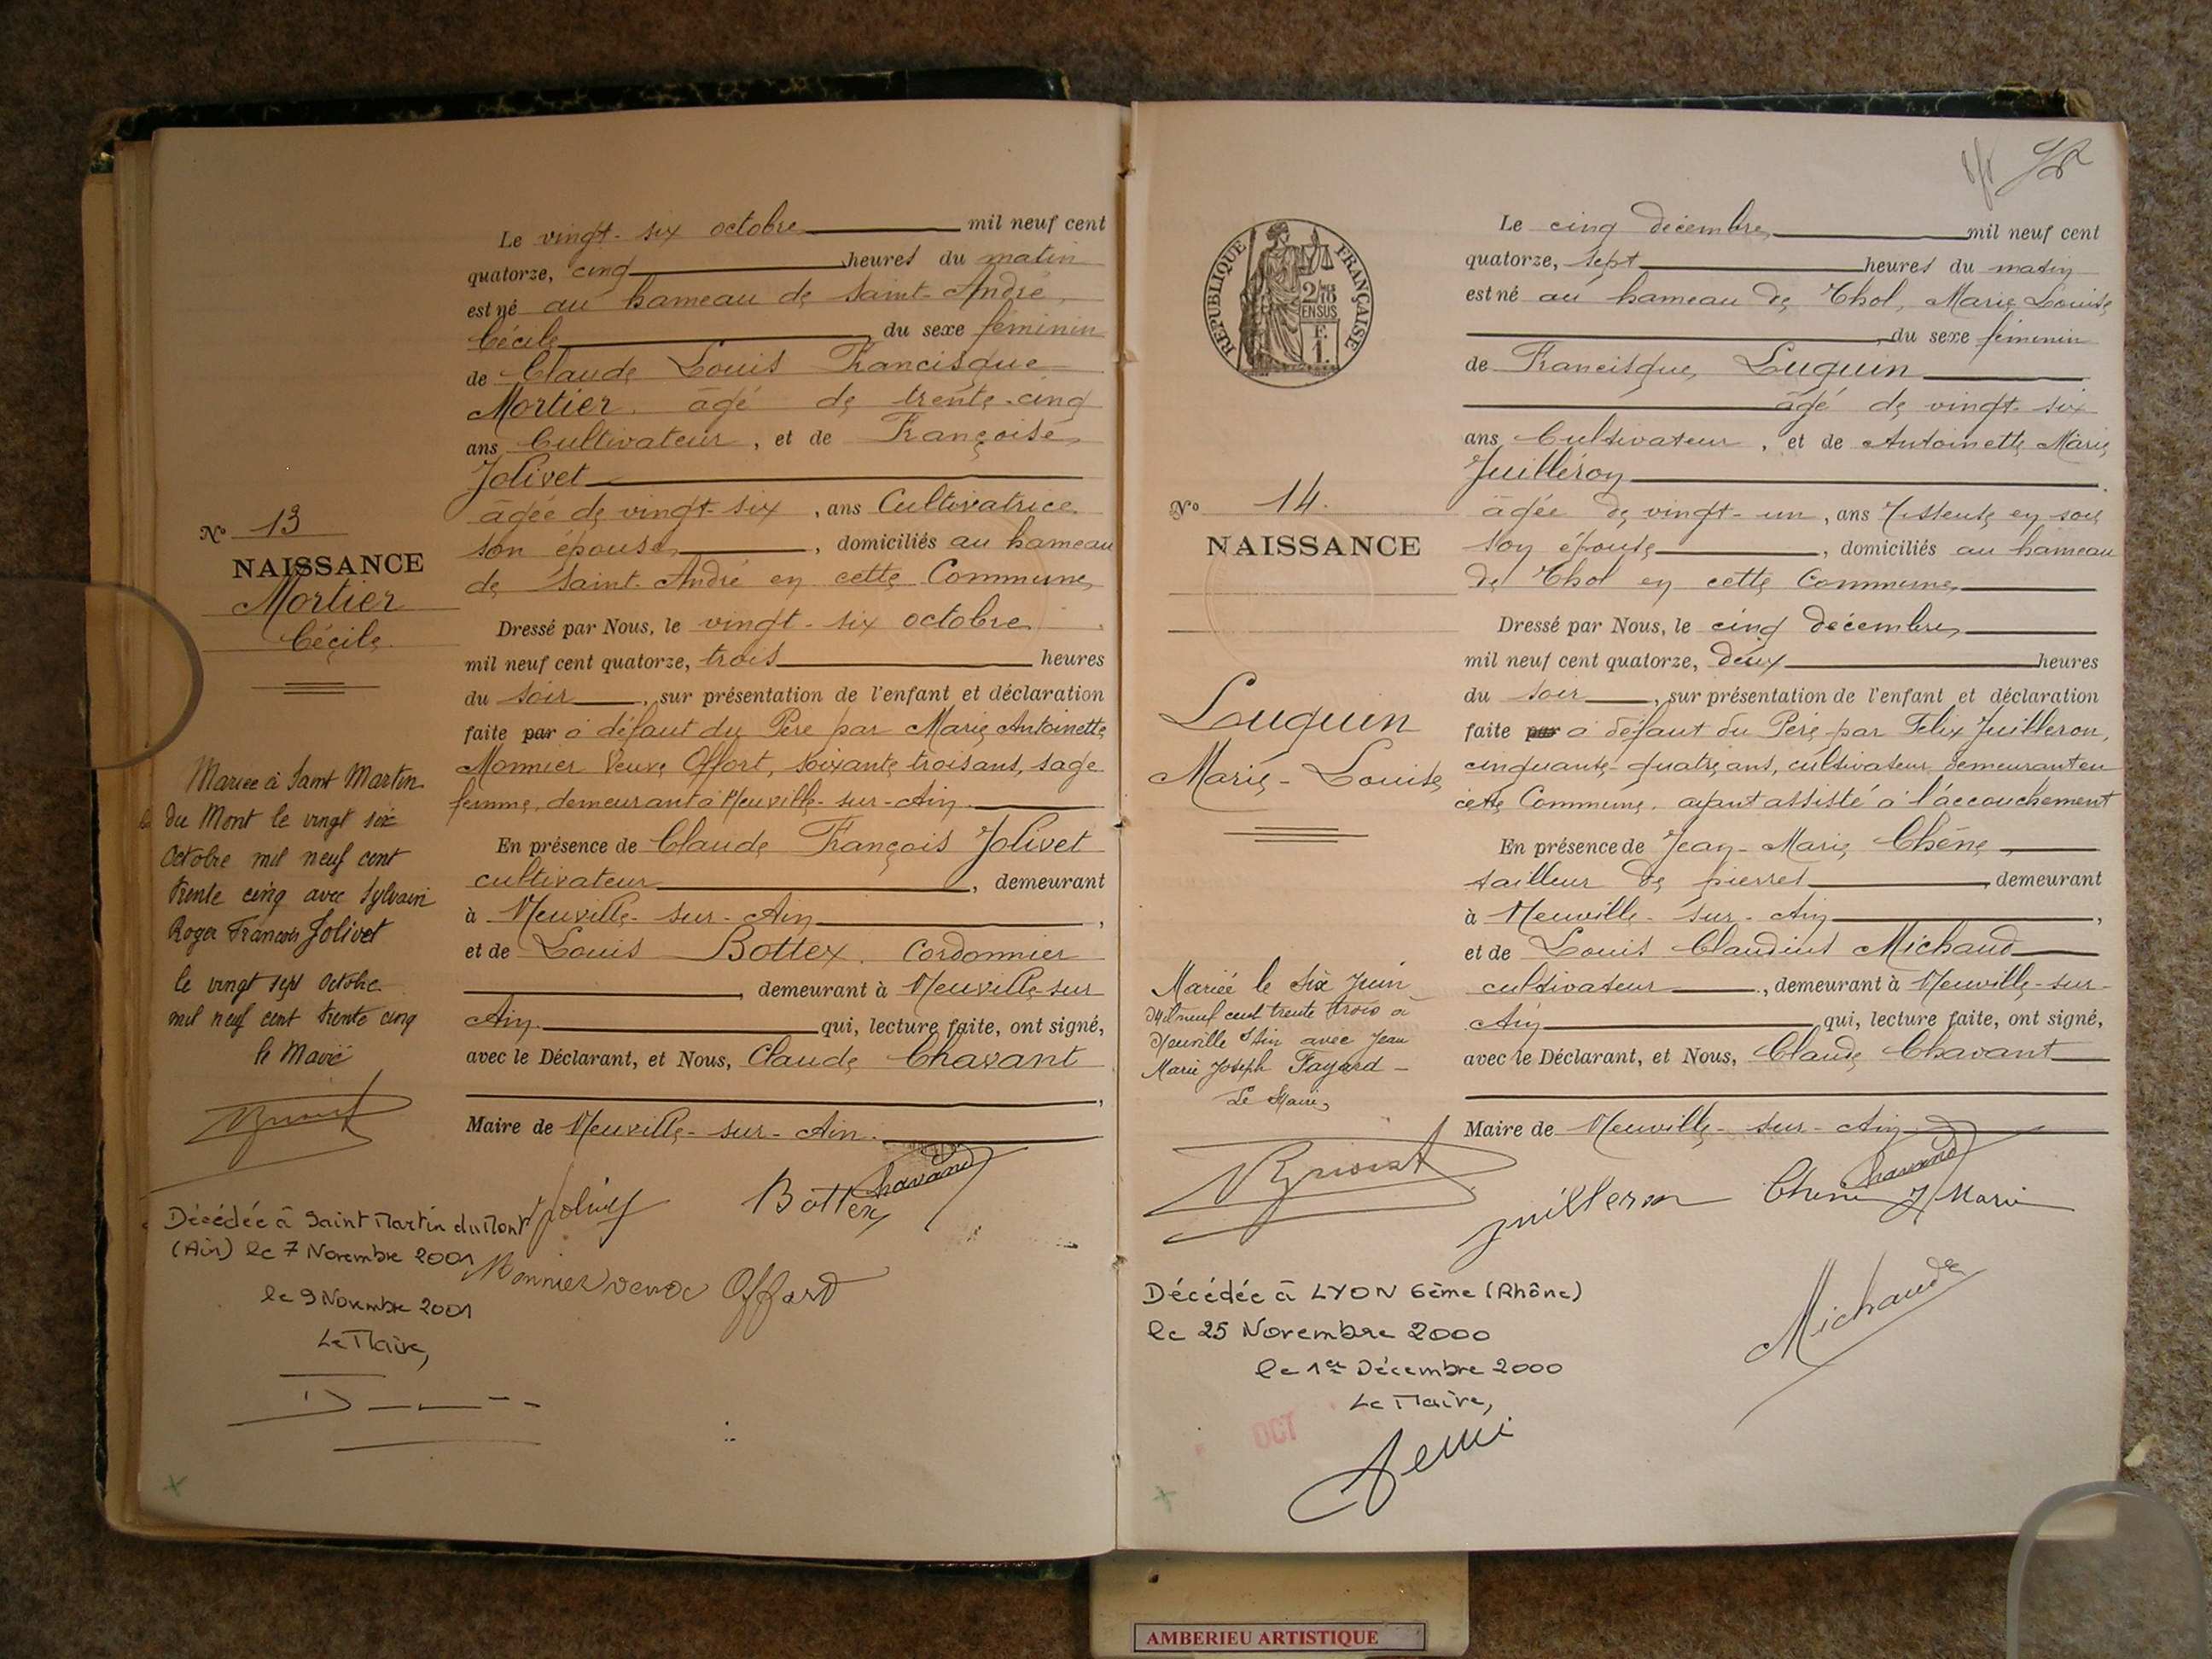 Le vingt-six octobre mil neuf cent
quatorze, cinq heures du matin
est né au hameau de Saint-André,
Cécile, du sexe féminin
de Claude Louis Francisque
Mortier, âgé de trente-cinq
ans Cultivateur, et de Françoise
Jolivet
âgée de vingt-six, ans Cultivatrice
son épouse, domiciliés au hameau
de Saint-André en cette Commune
Dressé par Nous, le vingt-six octobre
mil neuf cent quatorze, trois heures
du soir, sur présentation de l'enfant et déclaration
faite par à défaut du Père par Marie Antoinette
Monnier Veuve Offort, soixante trois ans, sage
femme, demeurant à Neuville-sur-Ain
En présence de Claude François Jolivet
cultivateur, demeurant
à Neuville-sur-Ain,
et de Louis Bottex, Cordonnier
, demeurant à Neuville-sur
Ain qui, lecture faite, ont signé,
avec le Déclarant, et Nous, Claude Chavant
,
Maire de Neuville-sur-Ain.
Jolivet Bottex Chavand
Monnier veuve Offord
No 13
NAISSANCE
Mortier
Cécile
Mariée à Saint Martin
du Mont le vingt six
Octobre mil neuf cent
trente cinq avec Sylvain
Roger François Jolivet
le vingt sept Octobre
mil neuf cent trente cinq
le Maire
Décédée à Saint Martin du Mont
(Ain) le 7 Novembre 2001
le 9 Novembre 2001
Le Maire,
Le cinq décembre mil neuf cent
quatorze, sept heures du matin
est né au hameau de Thol, Marie Louise
, du sexe féminin
de Francisque Luquin
âgé de vingt-six
ans Cultivateur, et de Antoinette Marie
Juilléron
âgée de vingt-un, ans Tisseuse en soie
son épouse, domiciliés au hameau
de Thol en cette Commune
Dressé par Nous, le cinq décembre
mil neuf cent quatorze, deux heures
du soir, sur présentation de l'enfant et déclaration
faite par à défaut du Père par Félix Juilleron,
cinquante-quatre ans, cultivateur demeurant en
cette Commune, ayant assisté à l'accouchement
En présence de Jean-Marie Chêne,
tailleur de pierres, demeurant
à Neuville-sur-Ain,
et de Louis Claudius Michaud
cultivateur, demeurant à Neuville-sur-
Ain qui, lecture faite, ont signé,
avec le Déclarant, et Nous, Claude Chavant
Maire de Neuville-sur-Ain
Juilleron Chêne J Marie Chavand
Michaud
RÉPUBLIQUE FRANÇAISE
2/10MES
EN SUS
F.
1.
No 14.
NAISSANCE
Luquin
Marie-Louise
Mariée le Six Juin
Mil neuf cent trente trois à
Neuville s/Ain avec Jean
Marie Joseph Fayard -
Le Maire,
Décédée à LYON 6ème (Rhône)
le 25 Novembre 2000
le 1er Décembre 2000
Le Maire,
OCT
AMBERIEU ARTISTIQUE